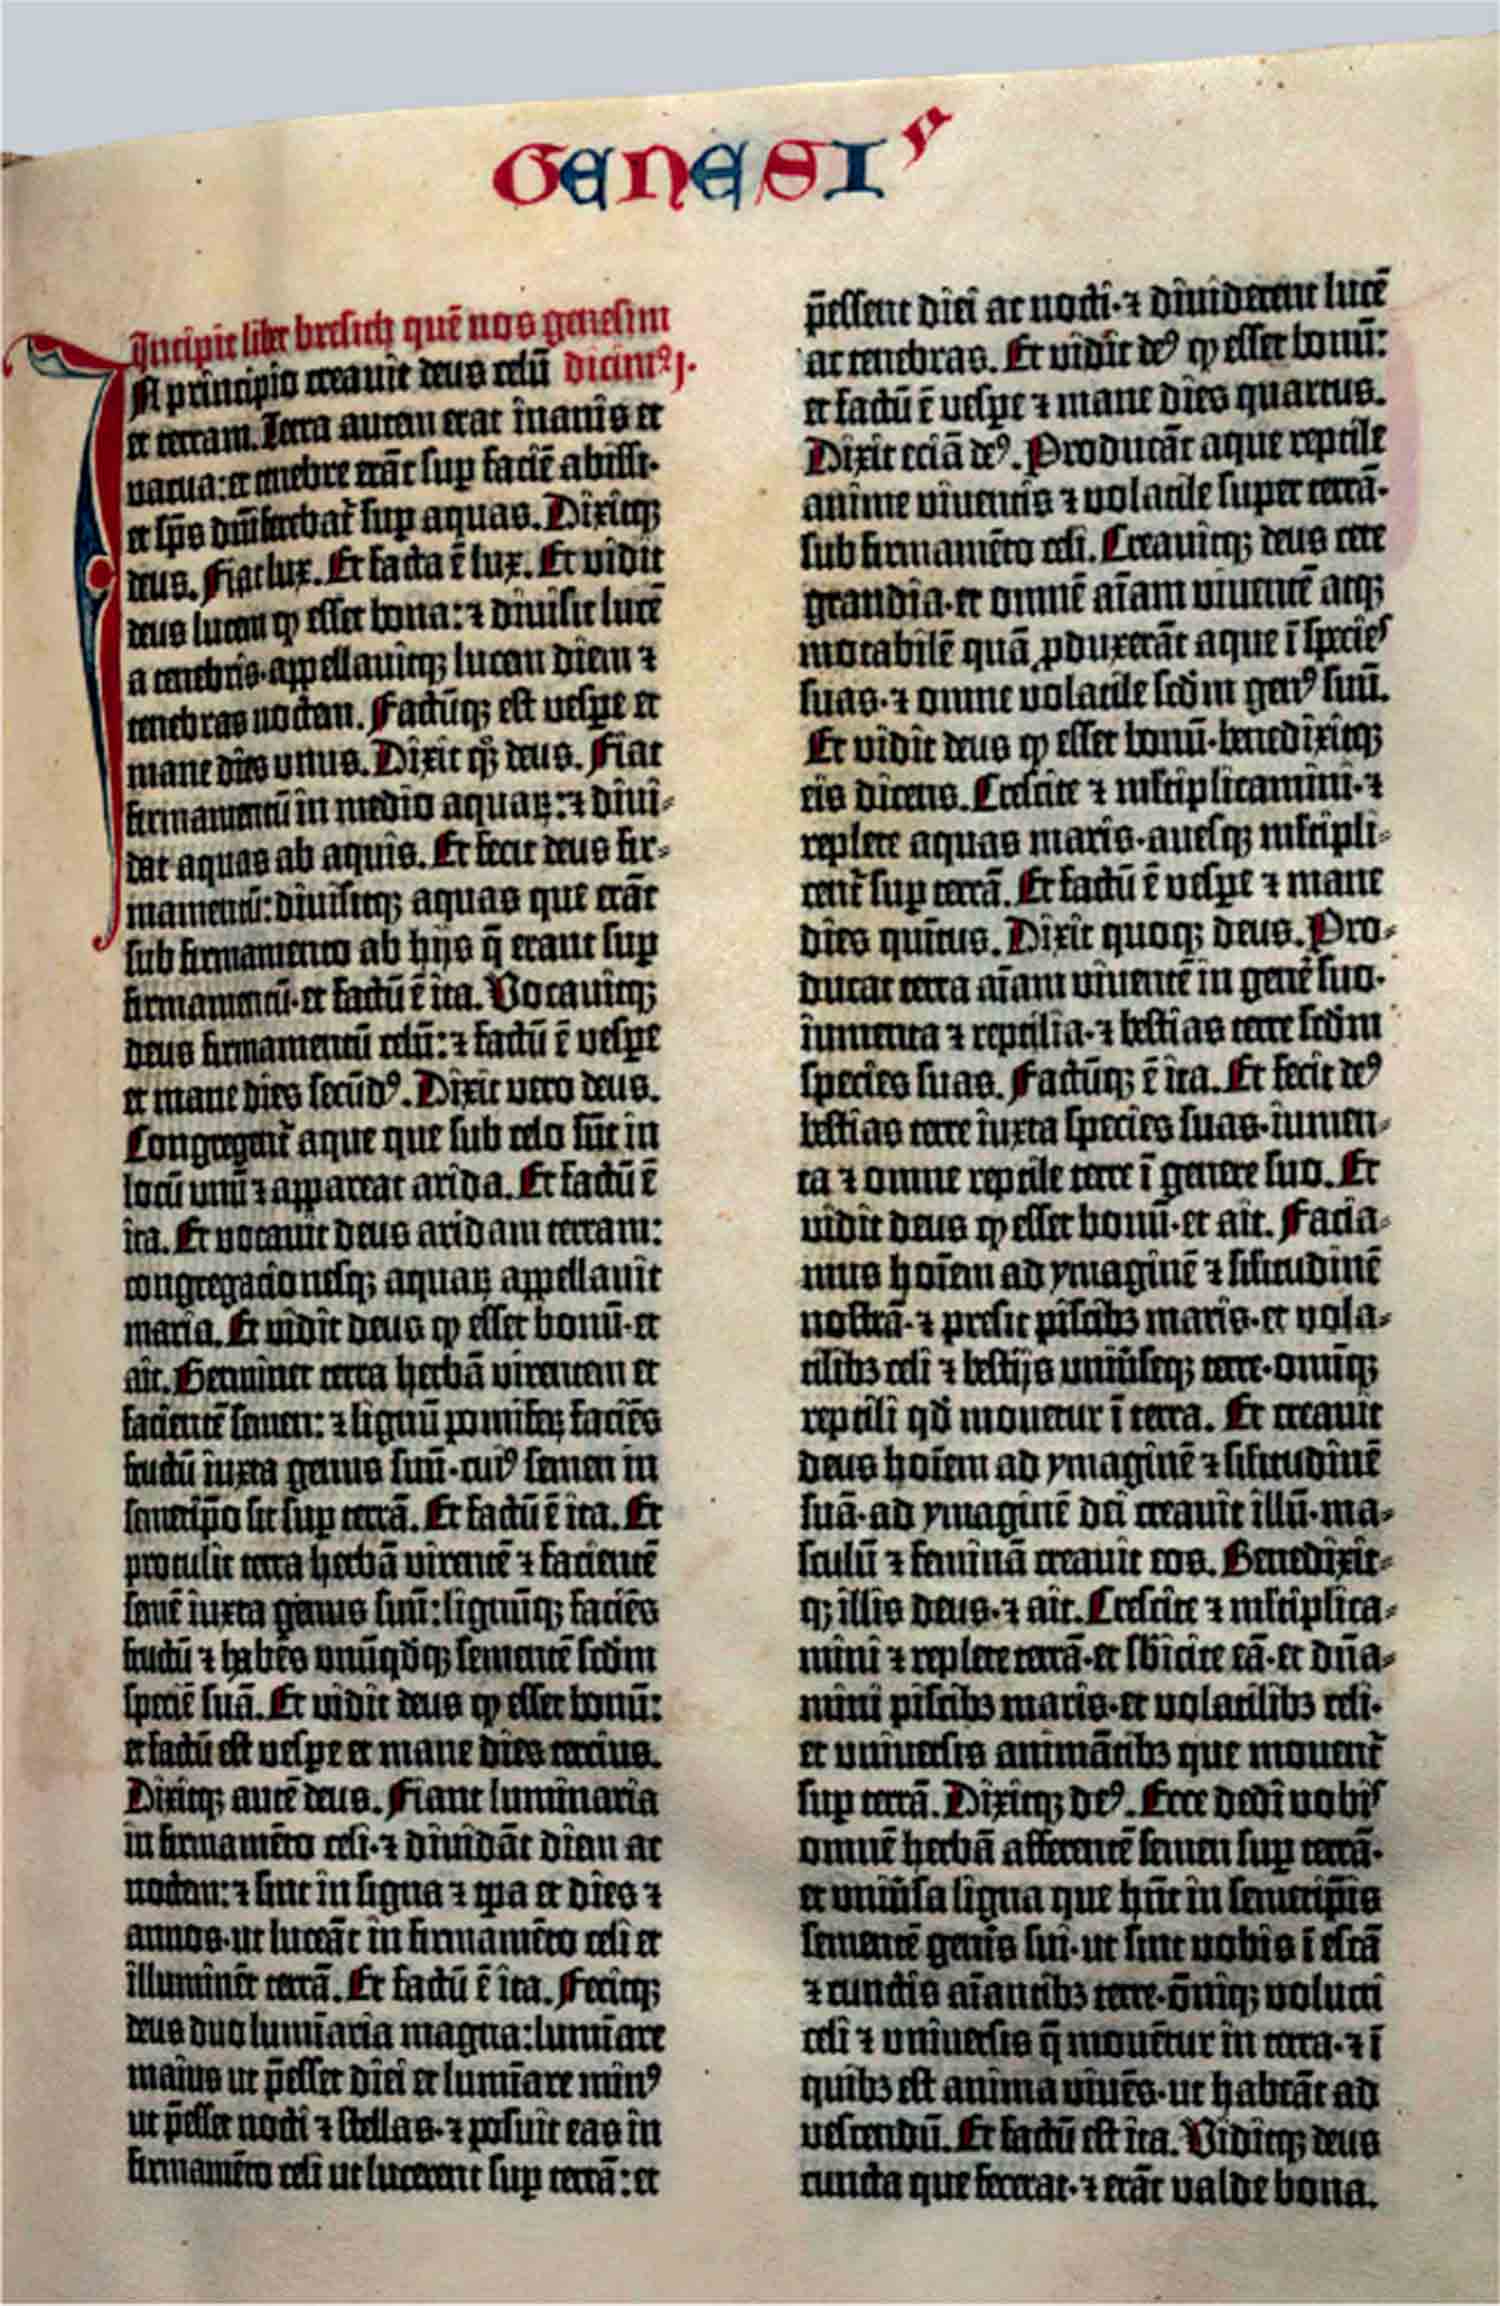 GENESIS
Incipit liber bresith quē nos genesim
In principio creauit deus celū dicimꝰ j.
et terram. Terra autem erat inanis et
uacua: et tenebre erāt suꝑ faciē abissi·
et sp̄s dn̄i ferebat᷑ suꝑ aquas. Dixitqꝫ
deus. Fiat lux. Et facta ē lux. Et vidit
deus lucem ꝙ esset bona: ⁊ diuisit lucē
a tenebris·appellauitqꝫ lucem diem ⁊
tenebras noctem. Factūqꝫ est vesꝑe et
mane dies vnus. Dixit qqꝫ deus. Fiat
firmamentū in medio aquaꝝ: ⁊ diui-
dat aquas ab aquis. Et fecit deus fir-
mamentū: diuisitqꝫ aquas que erāt
sub firmamento ab hijs q̄ erant suꝑ
firmamentū·et factū ē ita. Vocauitqꝫ
deus firmamentū celū: ⁊ factū ē vesꝑe
et mane dies secūdꝰ. Dixit vero deus.
Congregent᷑ aque que sub celo sūt in
locū vnū ⁊ appareat arida. Et factū ē
ita. Et vocauit deus aridam terram:
congregacionesqꝫ aquaꝝ appellauit
maria. Et vidit deus ꝙ esset bonū·et
ait. Germinet terra herbā virentem et
facientē semen: ⁊ lignū pomifeꝝ faciēs
fructū iuxta genus suū·cuiꝰ semen in
semetip̄o sit suꝑ terrā. Et factū ē ita. Et
protulit terra herbā virentē ⁊ facientē
semē iuxta genus suū: lignūqꝫ faciēs
fructū ⁊ habēs vnūqd̄qꝫ sementē scd̄m
speciē suā. Et vidit deus ꝙ esset bonū:
et factū est vesꝑe et mane dies tercius.
Dixitqꝫ autē deus. Fiant luminaria
in firmamēto celi·⁊ diuidāt diem ac
noctem: ⁊ sint in signa ⁊ tꝑa et dies ⁊
annos·ut luceāt in firmamēto celi et
illuminēt terrā. Et factū ē ita. Fecitqꝫ
deus duo lumīaria magna: lumīare
maius ut p̄esset diei et lumīare minꝰ
ut p̄esset nocti ⁊ stellas·⁊ posuit eas in
firmamēto celi ut lucerent suꝑ terrā: et
p̄essent diei ac nocti·⁊ diuiderent lucē
ac tenebras. Et vidit deꝰ ꝙ esset bonū:
et factū ē vesꝑe ⁊ mane dies quartus.
Dixit eciā deꝰ. Producāt aque reptile
anime viuentis ⁊ volatile super terrā·
sub firmamēto celi. Creauitqꝫ deus cete
grandia·et omnē aīam viuentē atqꝫ
motabilē quā ꝓduxerāt aque ī species
suas·⁊ omne volatile scd̄m genꝰ suū.
Et vidit deus ꝙ esset bonū·benedixitqꝫ
eis dicens. Crescite ⁊ ml̄tiplicamini·⁊
replete aquas maris·auesqꝫ ml̄tipli-
cent᷑ suꝑ terrā. Et factū ē vesꝑe ⁊ mane
dies quītus. Dixit quoqꝫ deus. Pro-
ducat terra aīam viuentē in genē suo·
iumenta ⁊ reptilia·⁊ bestias terre scd̄m
species suas. Factūqꝫ ē ita. Et fecit deꝰ
bestias terre iuxta species suas·iumen-
ta ⁊ omne reptile terre ī genere suo. Et
vidit deus ꝙ esset bonū·et ait. Facia-
mus hoīem ad ymaginē ⁊ sil̄itudinē
nostrā·⁊ presit piscibꝫ maris·et vola-
tilibꝫ celi ⁊ bestijs vniūseqꝫ terre·omīqꝫ
reptili qd̄ mouetur ī terra. Et creauit
deus hoīem ad ymaginē ⁊ sil̄itudinē
suā·ad ymaginē dei creauit illū·ma-
sculū ⁊ feminā creauit eos. Benedixit-
qꝫ illis deus·⁊ ait. Crescite ⁊ ml̄tiplica-
mini ⁊ replete terrā·et sb̄icite eā·et dn̄a-
mini piscibꝫ maris·et volatilibꝫ celi·
et vniuersis animātibꝫ que mouent᷑
suꝑ terrā. Dixitqꝫ deꝰ. Ecce dedi vobis
omnē herbā afferentē semen suꝑ terrā·
et vniūsa ligna que hn̄t in semetip̄is
sementē genīs sui·ut sint vobis ī escā
⁊ cunctis aīantibꝫ terre·ōniqꝫ volucri
celi ⁊ vniuersis q̄ mouētur in terra·⁊ ī
quibꝫ est anima viuēs·ut habeāt ad
vescendū. Et factū est ita. Viditqꝫ deus
cuncta que fecerat·⁊ erāt valde bona.